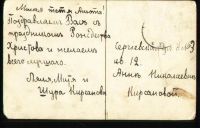 Милая тетя Анюта!
Поздравляем Вас с
праздником Рождества
Христова и желаем
всего лучшего.
Леля, Митя и
Шура Кирсановы
Сергиевская
кв 12
Анне Николаевне
Кирсановой